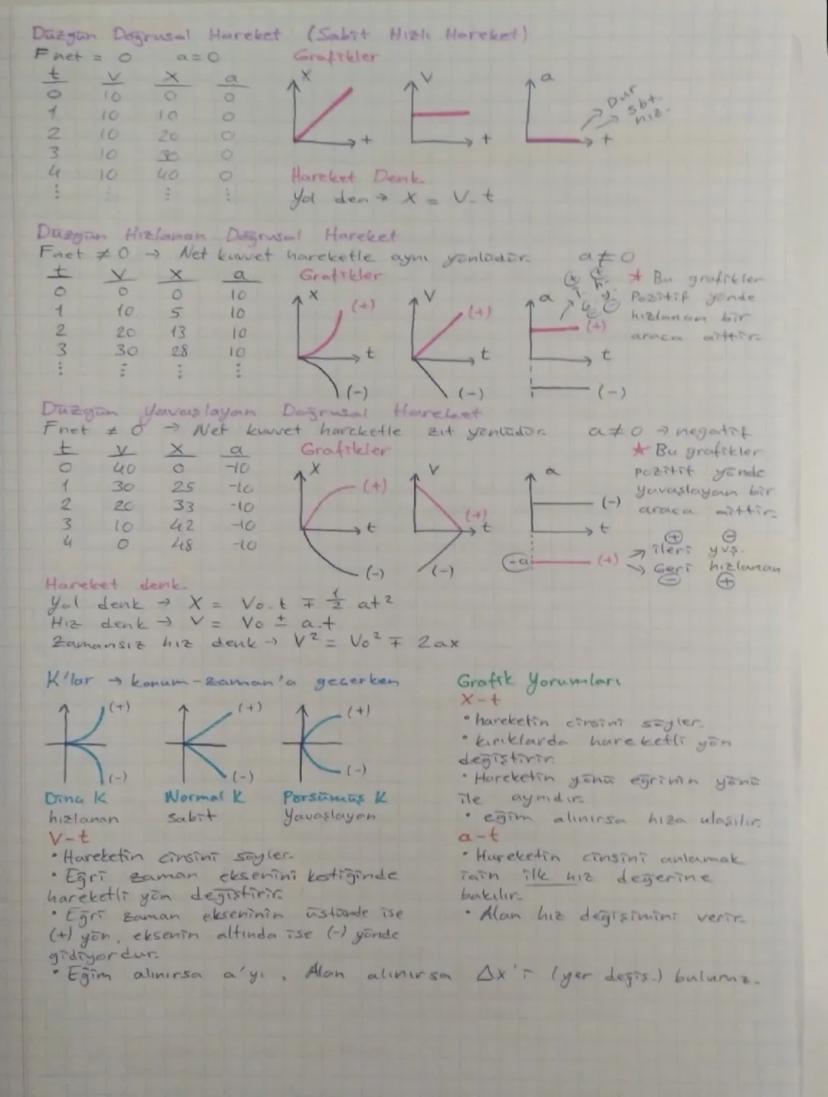 Düzgün Doğrusal Hareket (Sabit Hızlı Hareket)
Fnet = 0 a=0 Grafikler
t V X a
0 10 0 0
1 10 10 0
2 10 20 0
3 10 30 0
4 10 40 0
⋮ ⋮ ⋮ ⋮
X t
V t
a t
Dur
Sbt. hız.
Hareket Denk.
Yol den → X = V.t
Düzgün Hızlanan Doğrusal Hareket
Fnet ≠ 0 → Net kuvvet hareketle aynı yönlüdür. a≠0
t V X a Grafikler
0 0 0 10
1 10 5 10
2 20 13 10
3 30 28 10
⋮ ⋮ ⋮ ⋮
X (+) t (-)
V (+) t (-)
a (+) t (-)
★ Bu grafikler
Pozitif yönde
hızlanan bir
araca aittir.
Düzgün Yavaşlayan Doğrusal Hareket
Fnet ≠ 0 → Net kuvvet hareketle zıt yönlüdür. a≠0 → negatif
t V X a Grafikler
0 40 0 -10
1 30 25 -10
2 20 33 -10
3 10 42 -10
4 0 48 -10
X (+) t (-)
V (+) t (-)
a (-) t
-a (+)
★ Bu grafikler
pozitif yönde
yavaşlayan bir
araca aittir.
+ -
ileri yvş.
Geri hızlanan
- +
Hareket denk.
Yol denk → X = V₀.t ∓ 1/2 at²
Hız denk → V = V₀ ± a.t
Zamansız hız denk → V² = V₀² ∓ 2ax
K'lar → konum-zaman'a geçerken
(+) (-)
(+) (-)
(+) (-)
Dinç K Normal K Pörsümüş K
hızlanan sabit Yavaşlayan
V-t
• Hareketin cinsini söyler.
• Eğri zaman eksenini kestiğinde
hareketli yön değiştirir.
• Eğri zaman ekseninin üstünde ise
(+) yön, eksenin altında ise (-) yönde
gidiyordur.
• Eğim alınırsa a'yı, Alan alınırsa Δx'i (yer değiş.) buluruz.
Grafik Yorumları
X-t
• hareketin cinsini söyler.
• kırıklarda hareketli yön
değiştirir.
• Hareketin yönü eğrinin yönü
ile aynıdır.
• eğim alınırsa hıza ulaşılır.
a-t
• Hareketin cinsini anlamak
için ilk hız değerine
bakılır.
• Alan hız değişimini verir.